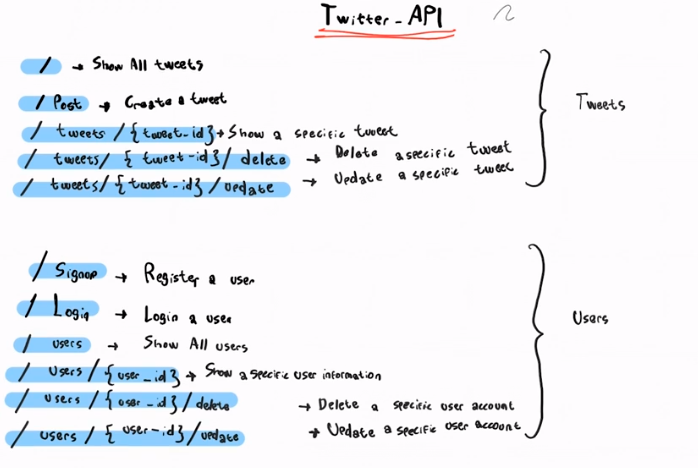 Twitter_API
/ → Show All tweets
/ Post → Create a tweet
/ tweets / {tweet-id} → Show a specific tweet
/ tweets / {tweet-id} / delete → Delete a specific tweet
/ tweets / {tweet-id} / update → Update a specific tweet
Tweets
/ Signup → Register a user
/ Login → Login a user
/ users → Show All users
/ Users / {user_id} → Show a specific user information
/ users / {user_id} / delete → Delete a specific user account
/ users / {user-id} / update → Update a specific user account
Users